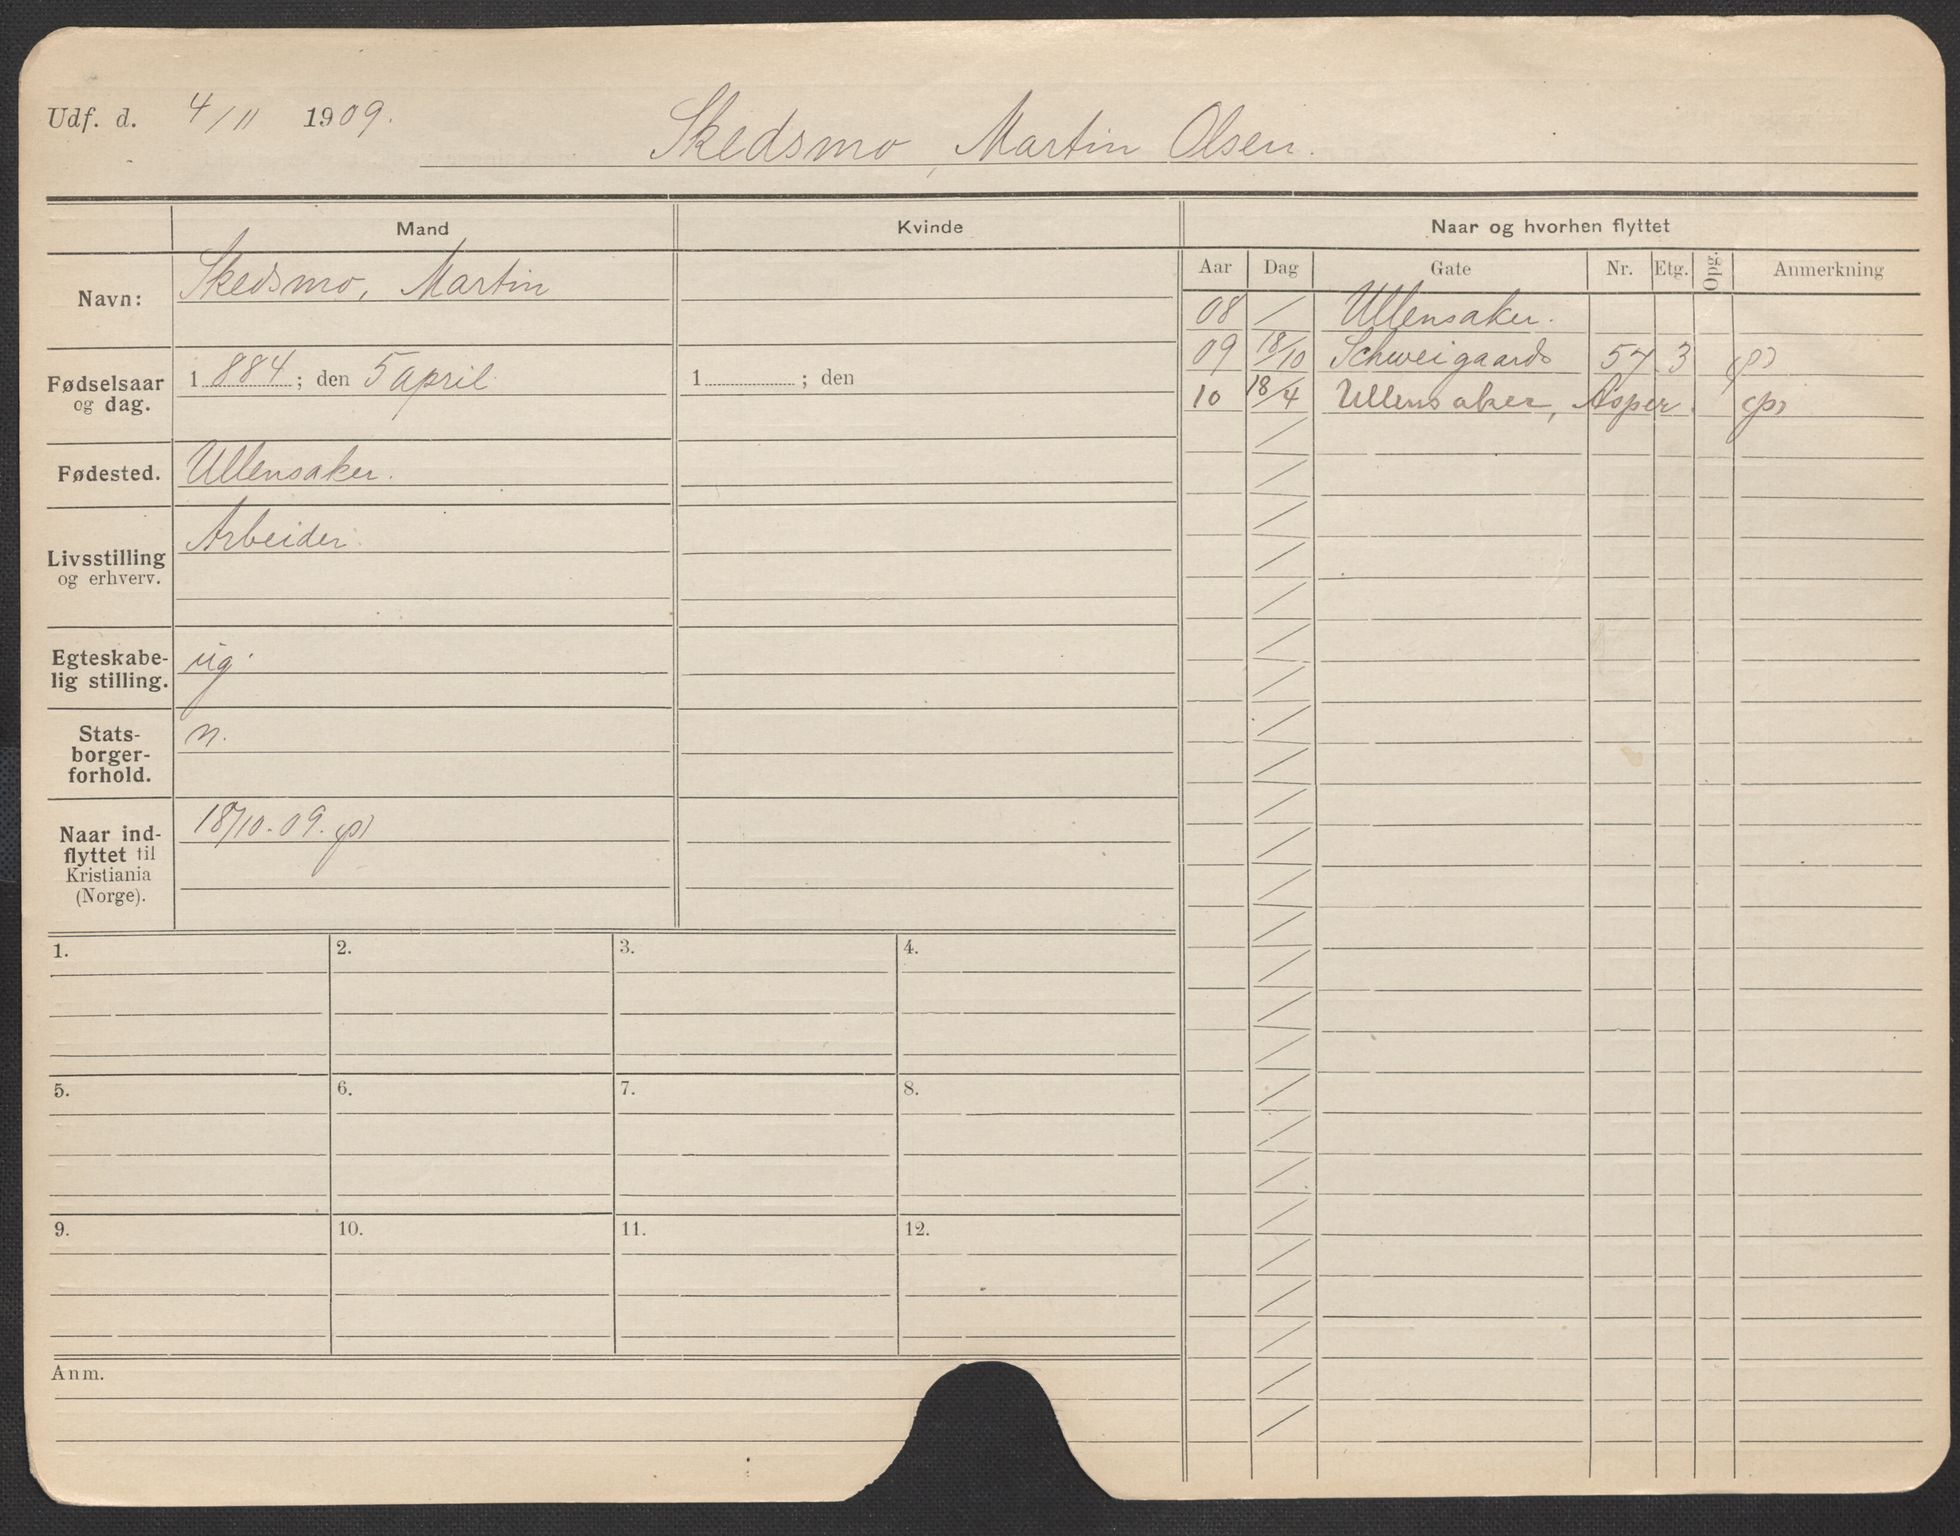 Udf. d. 4/11 1909.
Skedsmo, Martin Olsen.
Mand Kvinde Naar og hvorhen flyttet
Aar Dag Gate Nr. Etg. Opg. Anmerkning
Navn: Skedsmo, Martin
08 / Ullensaker.
09 18/10 Schweigaards 57 3 (p)
10 18/4 Ullensaker, Asper. (p)
Fødselsaar
og dag. 1 884 ; den 5 april 1 ; den
Fødested. Ullensaker.
Livsstilling
og erhverv. Arbeider.
Egteskabe-
lig stilling. ug.
Stats-
borger-
forhold. n.
Naar ind-
flyttet til
Kristiania
(Norge). 18/10.09. (p)
1. 2. 3. 4.
5. 6. 7. 8.
9. 10. 11. 12.
Anm.